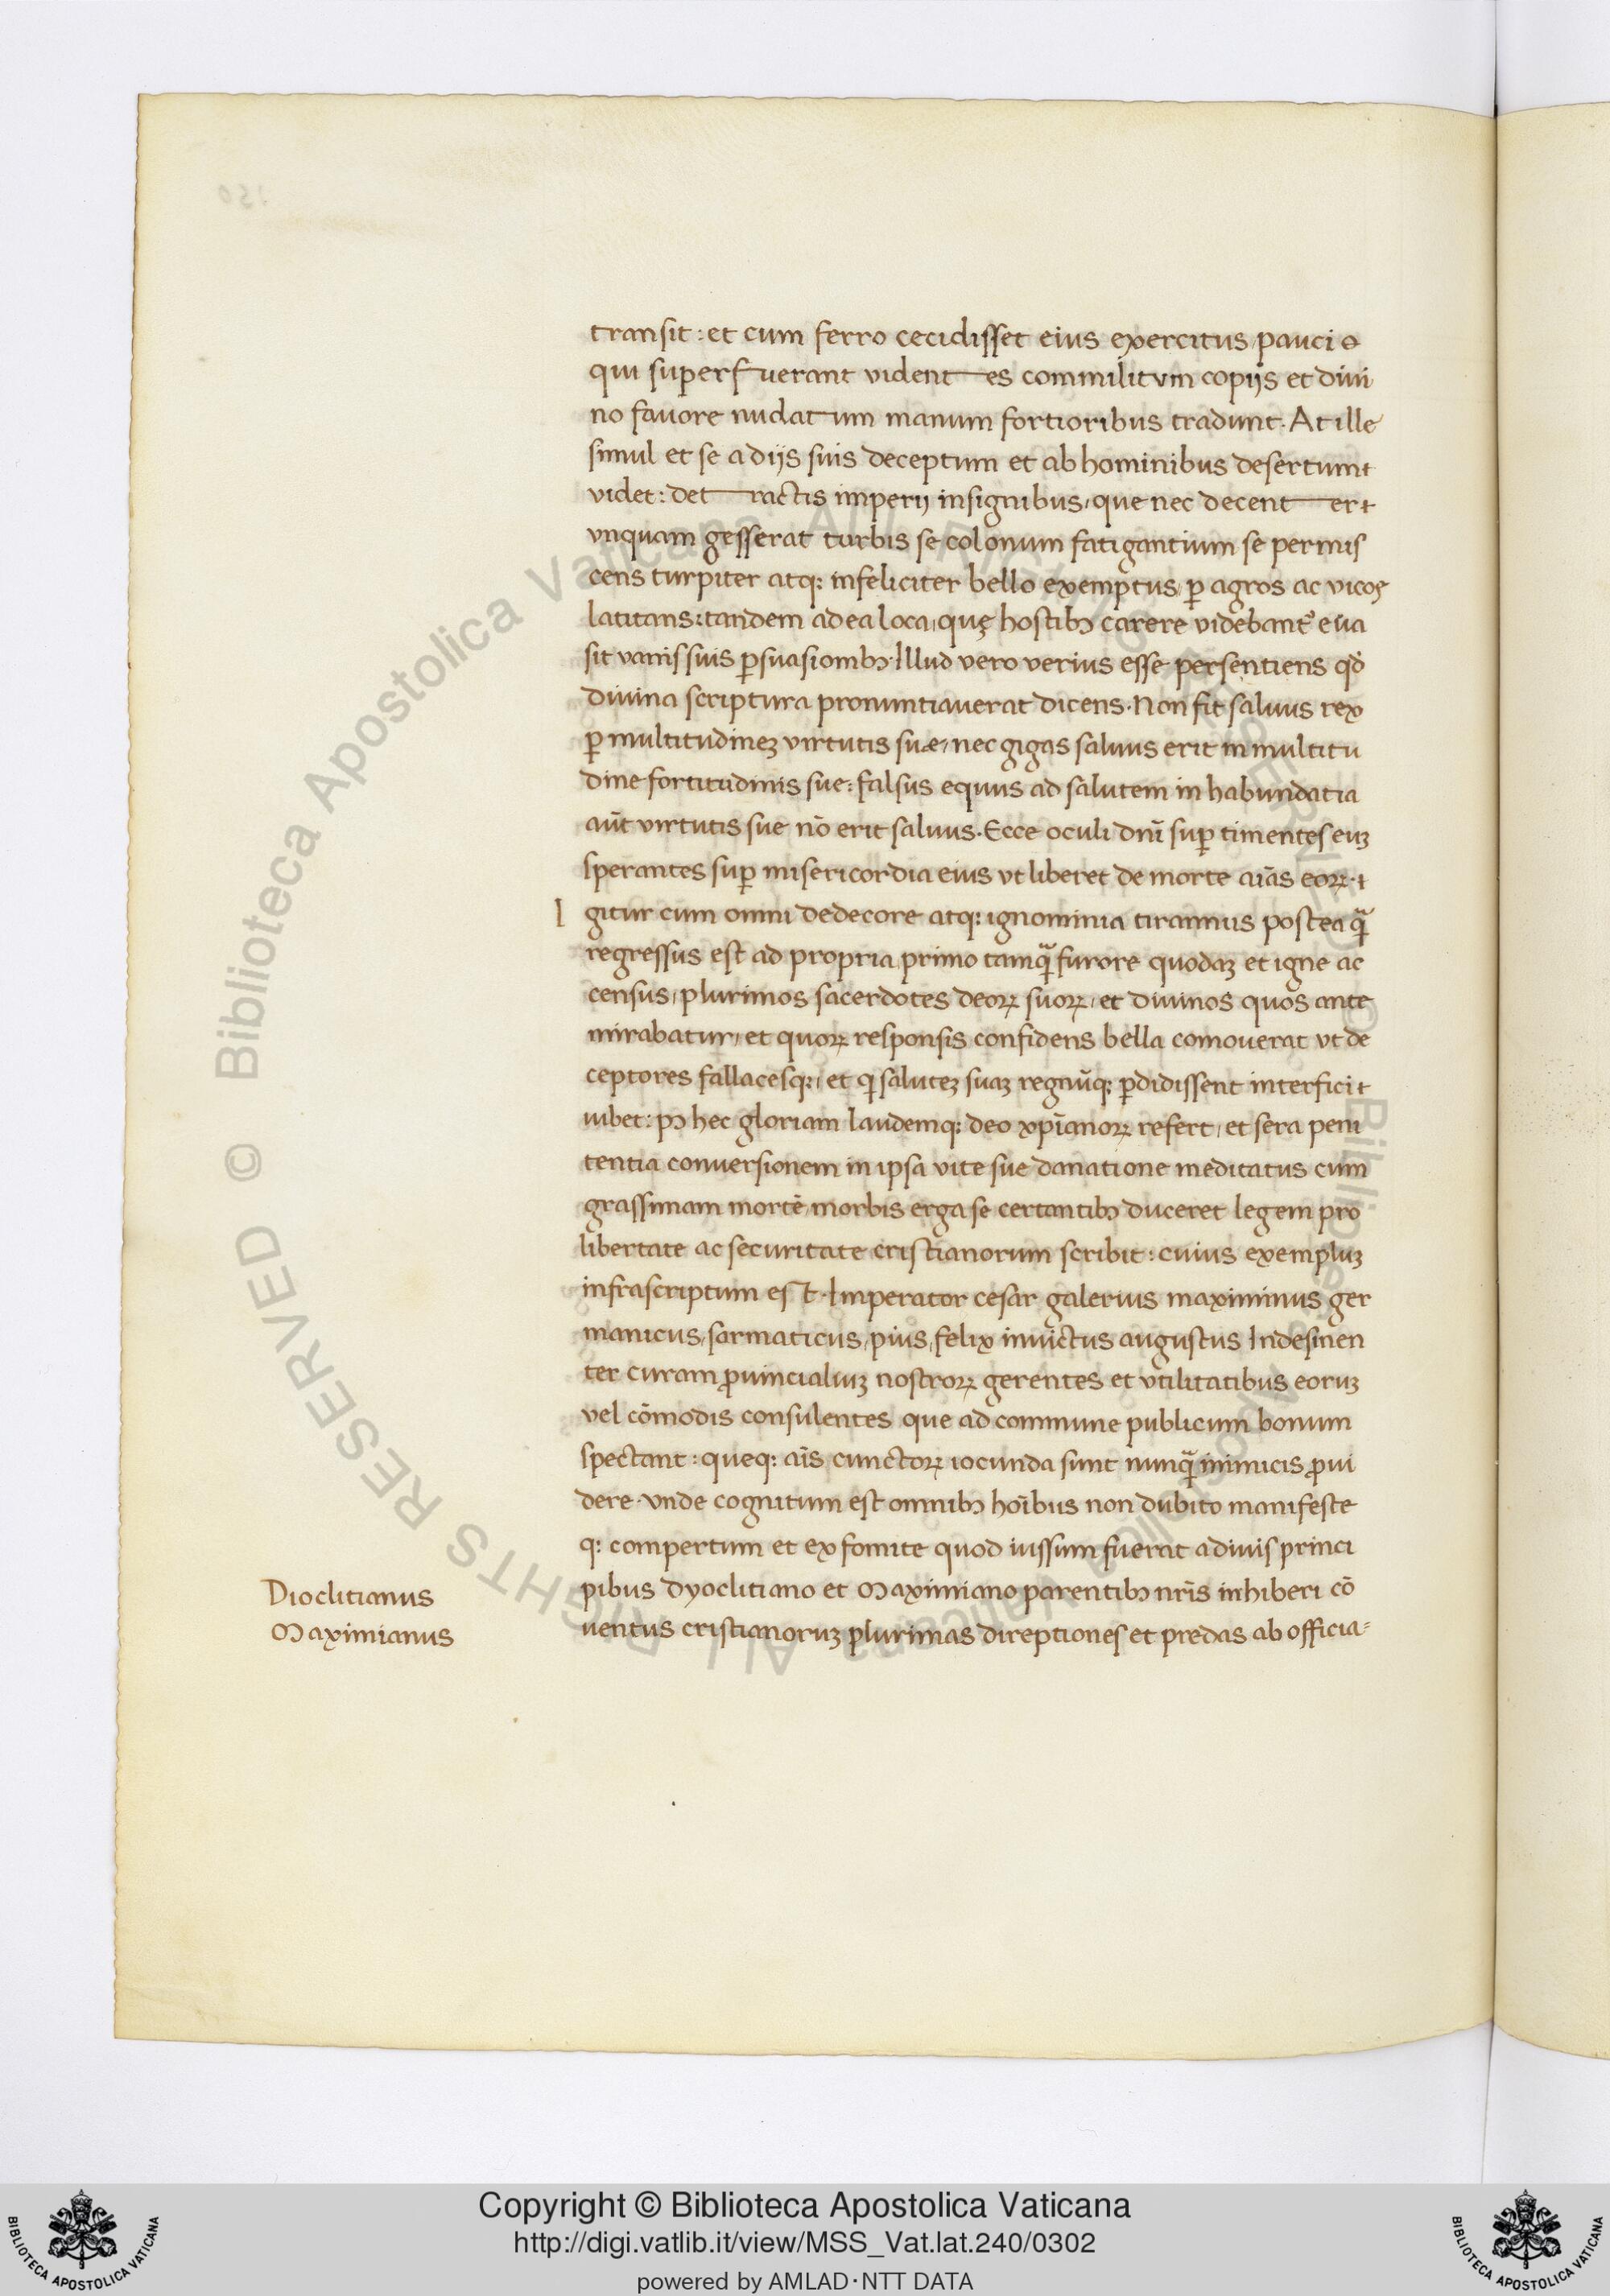 transit: et cum ferro cecidisset eius exercitus pauci
qui superfuerant videntes commilitvm copijs et divi
no favore nudatum manum fortioribus tradunt. At ille
simul et se a dijs suis deceptum et ab hominibus desertum
videt: detractis imperij insignibus, que nec decenter
vnquam gesserat turbis se colonum fatigantium se permis
cens turpiter atq: infeliciter bello exemptus, ꝑ agros ac vicos
latitans: tandem ad ea loca, quę hostibꝫ carere videbant᷑ eua
sit vanis suis ꝑsuasionibꝫ. Illud vero verius esse persentiens qd̾
divina scriptura pronuntiauerat dicens. Non fit saluus rex
ꝑ multitudineꝫ virtutis suæ, nec gigas saluus erit in multitu
dine fortitudinis sue: falsus equus ad salutem in habundatia
aūt virtutis sue nō erit saluus. Ecce oculi dnī suꝑ timentes euꝫ
sperantes suꝑ misericordia eius vt liberet de morte aīas eoꝝ.
I gitur cum omni dedecore atq: ignominia tirannus postea qᷓ
regressus est ad propria, primo tamqᷓ furore quodaꝫ et igne ac
census, plurimos sacerdotes deoꝝ suoꝝ, et divinos quos ante
mirabatur, et quoꝝ responsis confidens bella comouerat vt de
ceptores fallacesq:, et q saluteꝫ suaꝫ regnūq: ꝑdidissent interfici
iubet: pꝰ hec gloriam laudemq: deo xp̄ianoꝝ refert, et sera peni
tentia conuersionem in ipsa vite sue danatione meditatus cum
grassimam mortē morbis erga se certantibꝫ duceret legem pro
libertate ac securitate cristianorum scribit: cuius exempluꝫ
infrascriptum est. Imperator cesar galerius maximinus ger
manicus, sarmaticus, pius, felix invictus augustus Indesinen
ter curam ꝓuincialiuꝫ nostroꝝ gerentes et vtilitatibus eoruꝫ
vel cōmodis consulentes que ad commune publicum bonum
spectant: queq: aīs cunctoꝝ iocunda sunt nunqᷓ inimicis ꝓui
dere. vnde cognitum est omnibꝫ hoībus non dubito manifeste
q: compertum et ex fomite quod iussum fuerat a diuis princi
pibus dyoclitiano et Maximiano parentibꝫ nr̄is inhiberi cō
uentus cristianoruꝫ plurimas direptiones et predas ab officia=
Dioclitianus
Maximianus
Copyright © Biblioteca Apostolica Vaticana
http://digi.vatlib.it/view/MSS_Vat.lat.240/0302
powered by AMLAD·NTT DATA
BIBLIOTECA APOSTOLICA VATICANA
BIBLIOTECA APOSTOLICA VATICANA
© Biblioteca Apostolica Vaticana ALL RIGHTS RESERVED